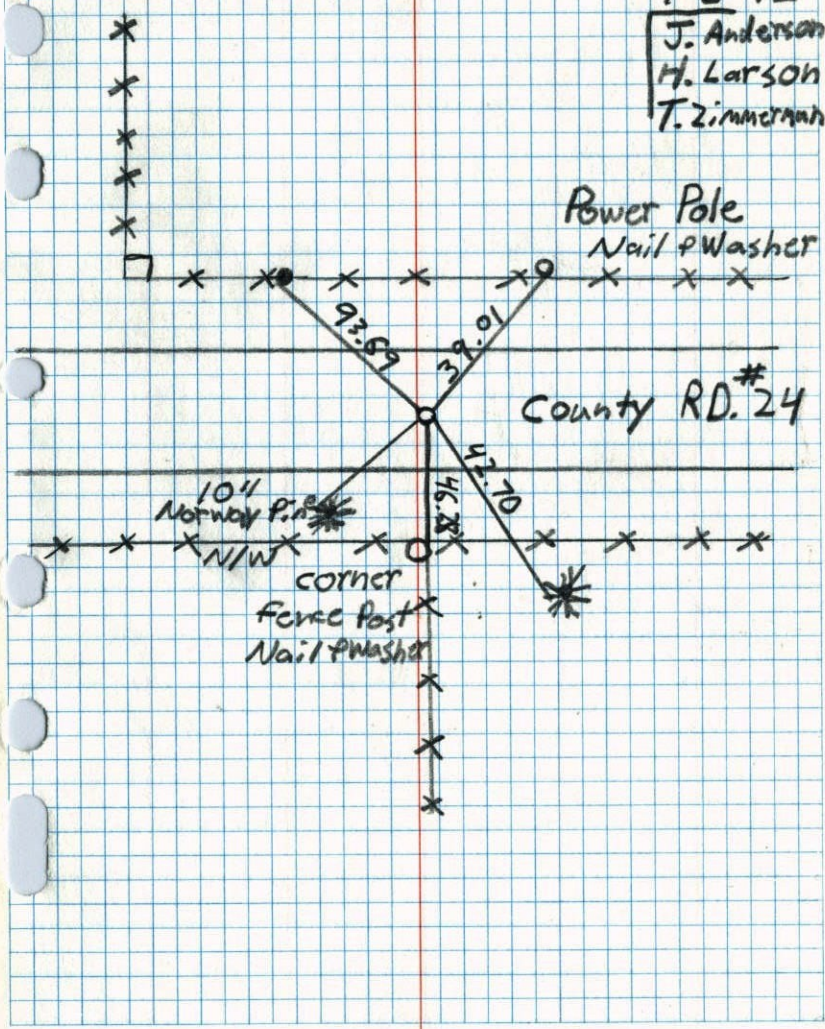 J. Anderson
H. Larson
T. Zimmerman
Power Pole
Nail & Washer
93.69
39.01
County RD. #24
42.70
46.28
10"
Norway Pine
N/W
corner
Fence Post
Nail & Washer